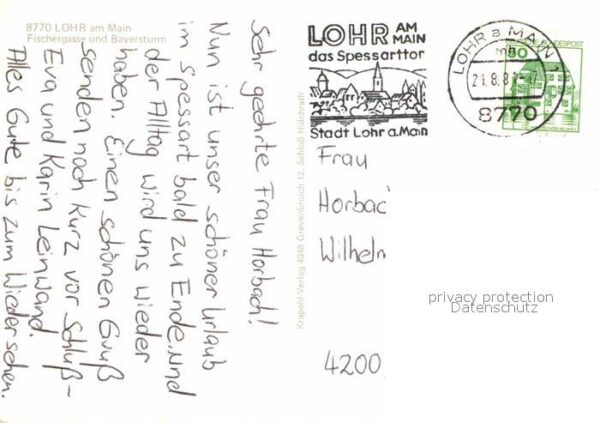 8770 LOHR am Main
Fischergasse und Bayersturm
Sehr geehrte Frau Horbach!
Nun ist unser schöner Urlaub
im Spessart bald zu Ende und
der Alltag wird uns wieder
haben. Einen schönen Gruß
senden noch kurz vor Schluß-
Eva und Karin Leinwand.
Alles Gute bis zum Wiedersehen.
Krapohl-Verlag 4048 Grevenbroich 12, Schloß Hülchrath
LOHR AM MAIN
das Spessarttor
Stadt Lohr a. Main
LOHR a MAIN 1
mg
21.8.8
8770
BUNDESPOST
Frau
Horbac
Wilhelm
4200
privacy protection
Datenschutz